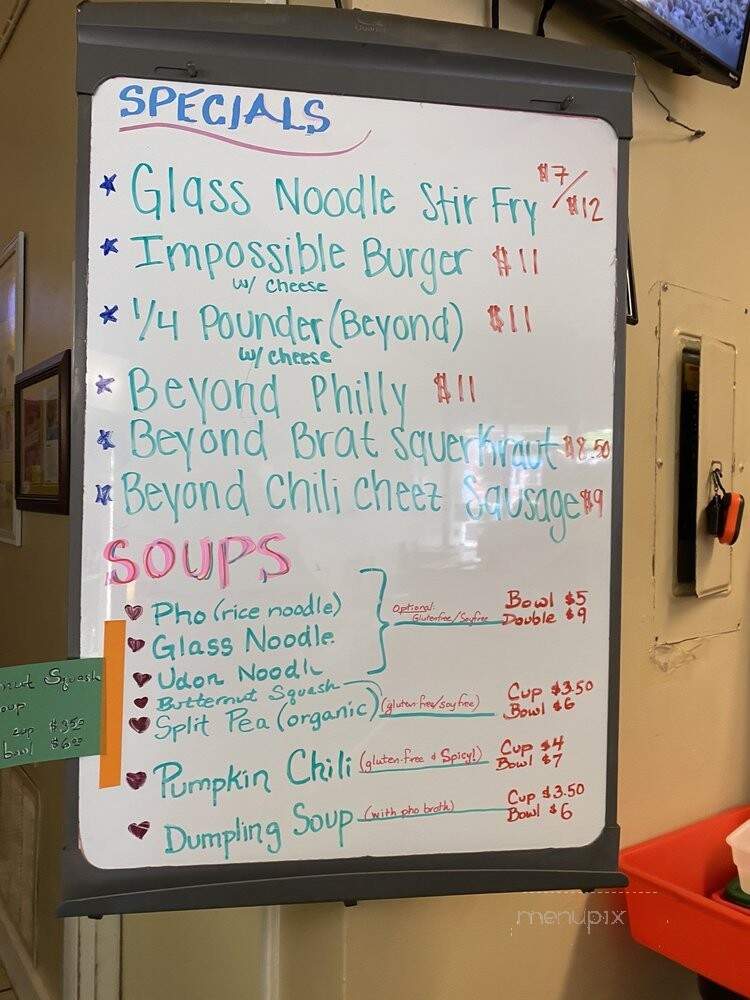 SPECIALS
Glass Noodle Stir Fry $7/$12
Impossible Burger $11
w/ cheese
1/4 Pounder (Beyond) $11
w/ cheese
Beyond Philly $11
Beyond Brat Squerkraut $8.50
Beyond Chili Cheez Sausage $9
SOUPS
Pho (rice noodle)
Glass Noodle
Udon Noodle
Optional: Glutenfree/Soyfree
Bowl $5
Double $9
Butternut Squash
Split Pea (organic) (gluten-free/soyfree)
Cup $3.50
Bowl $6
Pumpkin Chili (gluten-free & Spicy!)
Cup $4
Bowl $7
Dumpling Soup (with pho broth)
Cup $3.50
Bowl $6
nut Squash
oup
cup $3.50
bowl $6.00
menupix